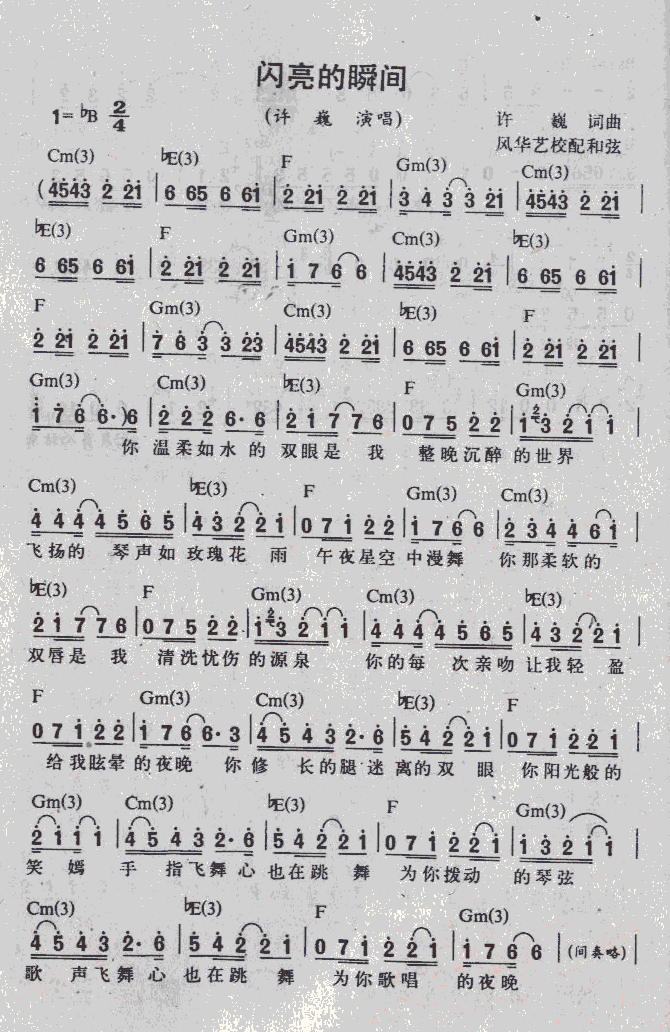 闪亮的瞬间
1= ♭B 2/4
(许 巍 演唱)
许 巍 词曲
风华艺校配和弦
Cm(3) ♭E(3) F Gm(3) Cm(3)
(4543 2 21 | 6 65 6 61 | 2 21 2 21 | 3 4 3 3 21 | 4543 2 21 |
♭E(3) F Gm(3) Cm(3) ♭E(3)
6 65 6 61 | 2 21 2 21 | 1 7 6 6 | 4543 2 21 | 6 65 6 61 |
F Gm(3) Cm(3) ♭E(3) F
2 21 2 21 | 7 6 3 3 23 | 4543 2 21 | 6 65 6 61 | 2 21 2 21 |
Gm(3) Cm(3) ♭E(3) F Gm(3)
1 7 6 6· )6 | 2 2 2 6· 6 | 2 1 7 7 6 | 0 7 5 2 2 | 1 2 3 2 1 1 |
你 温柔如水 的 双眼是 我 整晚沉醉 的世界
Cm(3) ♭E(3) F Gm(3) Cm(3)
4 4 4 4 5 6 5 | 4 3 2 2 1 | 0 7 1 2 2 | 1 7 6 6 | 2 3 4 4 6 1 |
飞扬的 琴声如 玫瑰花 雨 午夜星空 中漫舞 你那柔软的
♭E(3) F Gm(3) Cm(3) ♭E(3)
2 1 7 7 6 | 0 7 5 2 2· | 1 2 3 2 1 1 | 4 4 4 4 5 6 5 | 4 3 2 2 1 |
双唇是 我 清洗忧伤 的源泉 你的每 次亲吻 让我轻 盈
F Gm(3) Cm(3) ♭E(3) F
0 7 1 2 2 | 1 7 6 6· 3 | 4 5 4 3 2· 6 | 5 4 2 2 1 | 0 7 1 2 2 1 |
给我眩晕 的夜晚 你 修 长的腿迷 离的双 眼 你阳光般的
Gm(3) Cm(3) ♭E(3) F Gm(3)
2 1 1 1 | 4 5 4 3 2· 6 | 5 4 2 2 1 | 0 7 1 2 2 1 | 1 3 2 1 1 |
笑 嫣 手 指飞舞心 也在跳 舞 为你拨动 的琴弦
Cm(3) ♭E(3) F Gm(3)
4 5 4 3 2· 6 | 5 4 2 2 1 | 0 7 1 2 2 1 | 1 7 6 6 | (间奏略) |
歌 声飞舞心 也在跳 舞 为你歌唱 的夜晚